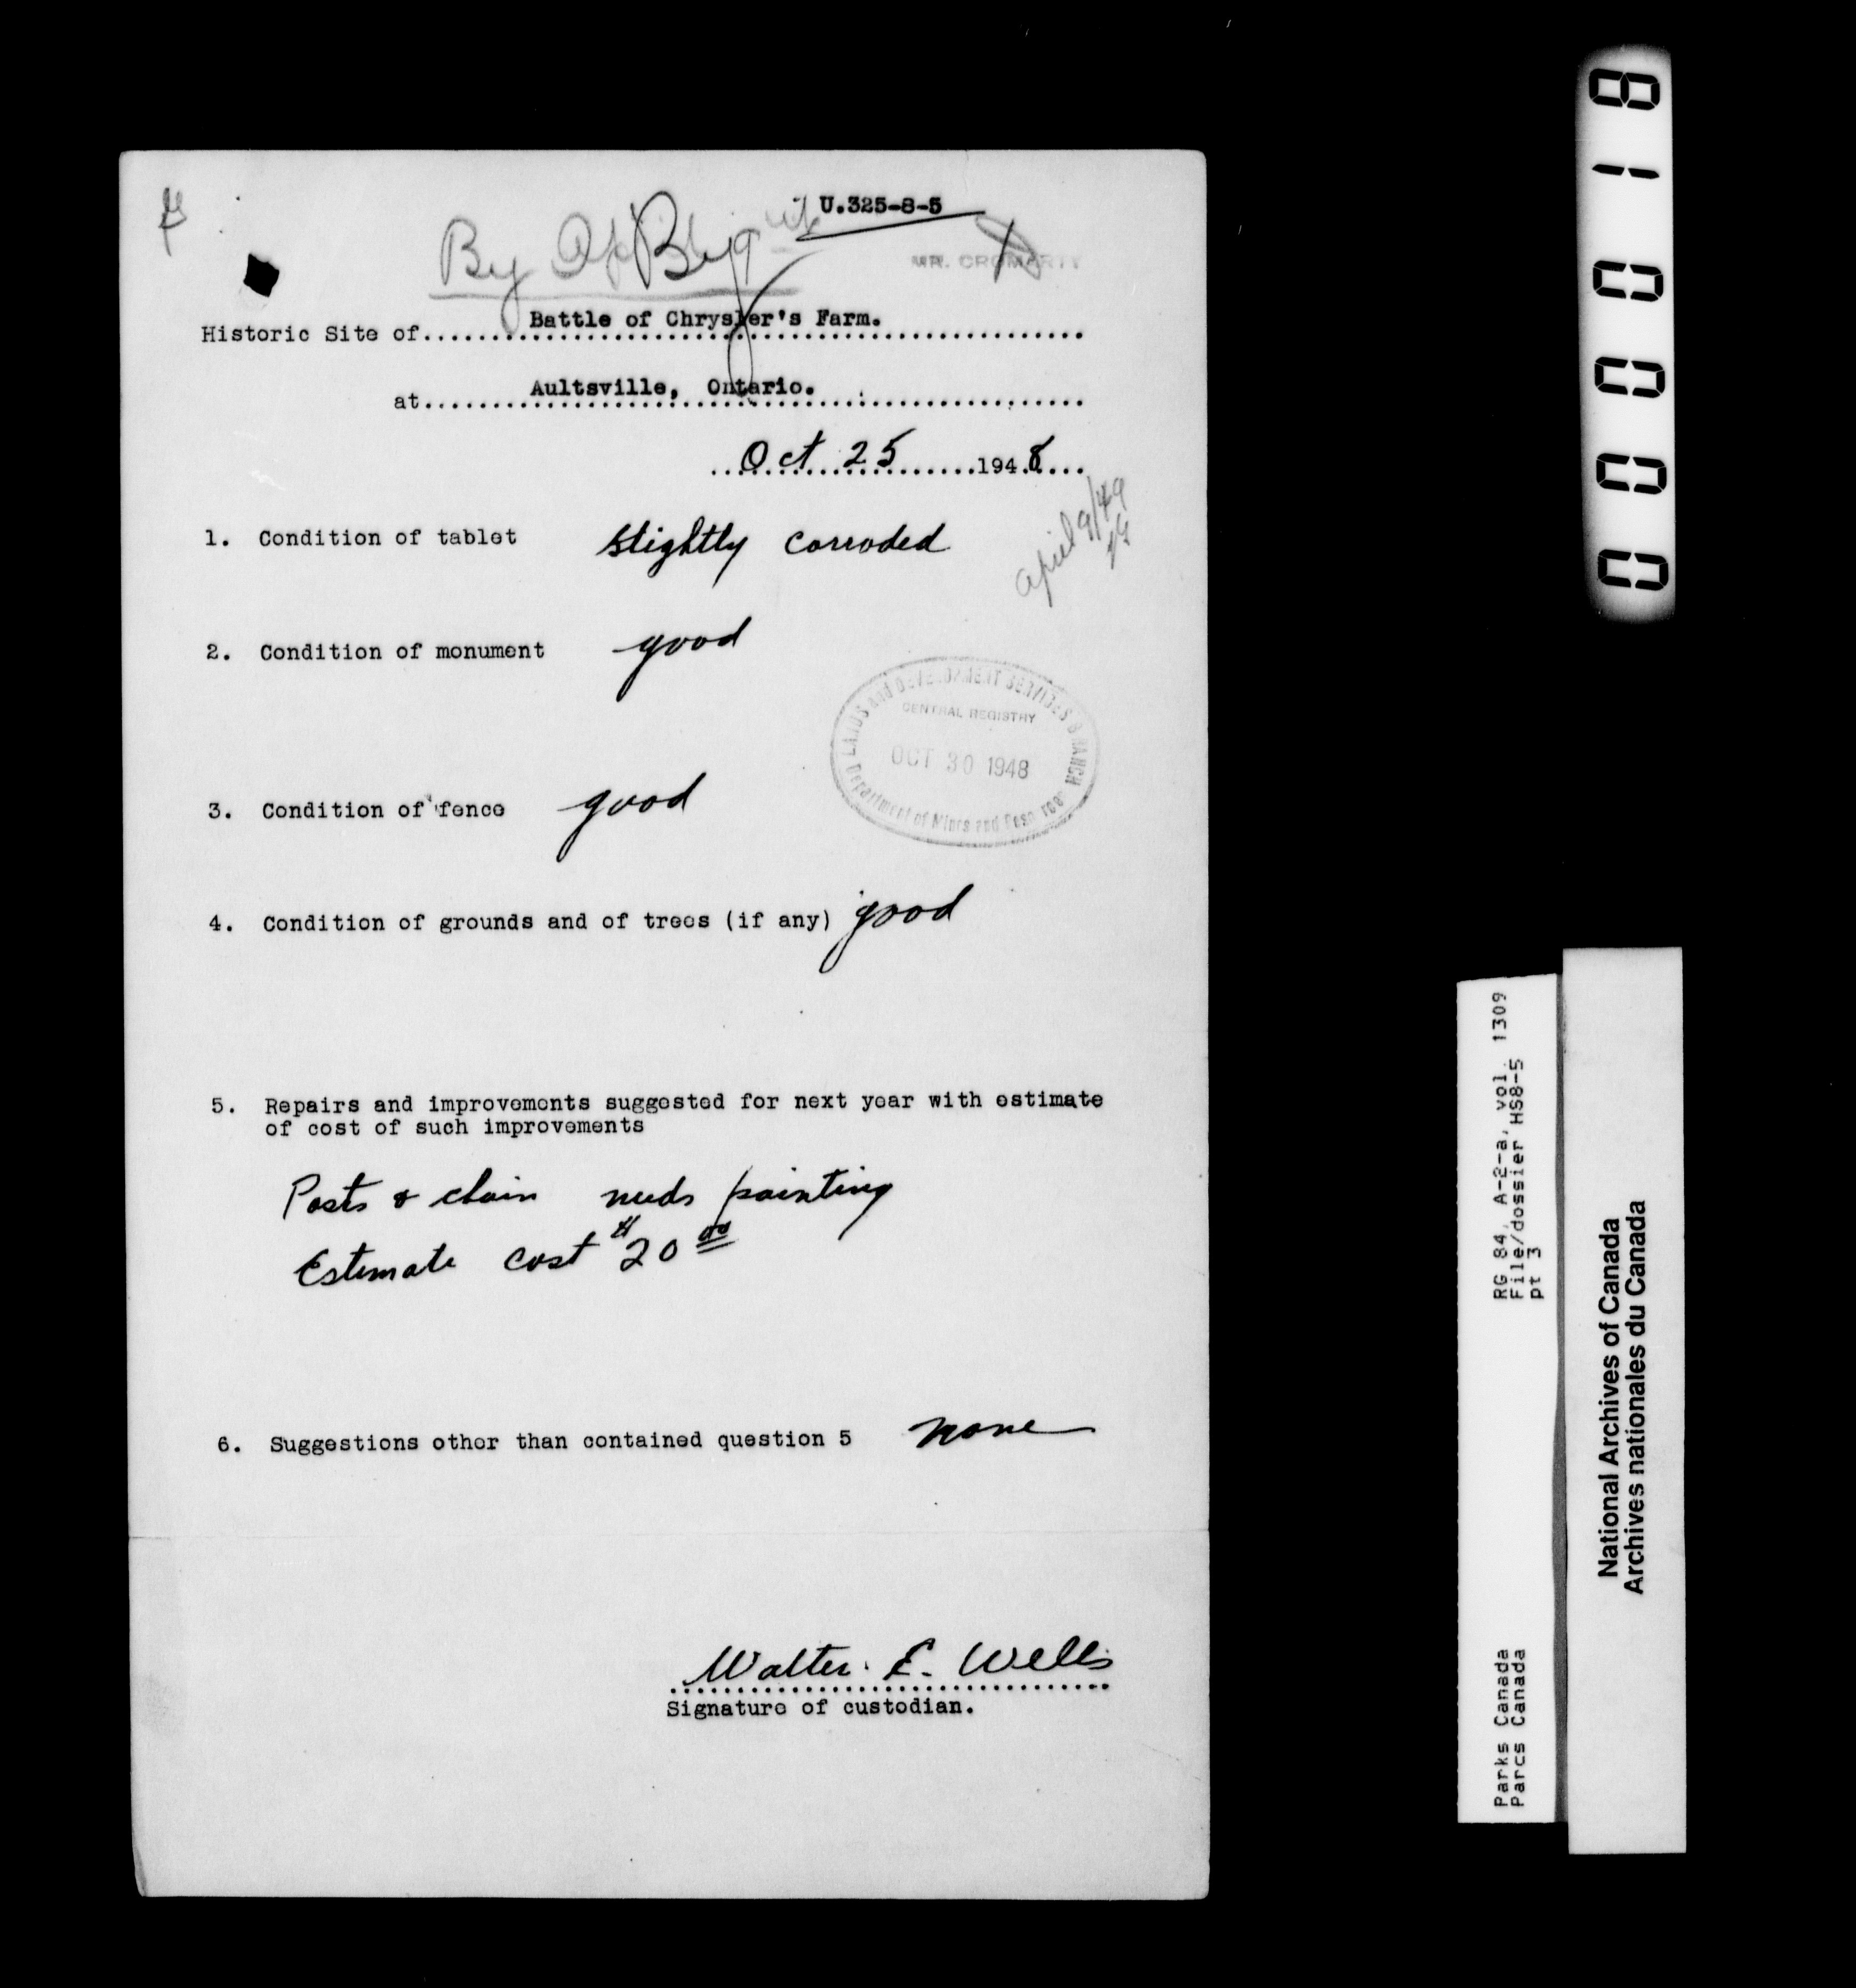 U.325-8-5
MR. CROMARTY
Historic Site of Battle of Chrysler's Farm.
at Aultsville, Ontario.
Oct 25 1948
April 9/49
1. Condition of tablet slightly corroded
2. Condition of monument good
LANDS and DEVELOPMENT SERVICES BRANCH
CENTRAL REGISTRY
OCT 30 1948
Department of Mines and Resources
3. Condition of fence good
4. Condition of grounds and of trees (if any) good
5. Repairs and improvements suggested for next year with estimate
of cost of such improvements
Posts & chain needs painting
Estimate cost $20.00
6. Suggestions other than contained question 5 none
Walter. E. Wells
Signature of custodian.
000018
RG 84, A-2-a, vol. 1309
File/dossier HS8-5
pt 3
Parks Canada
Parcs Canada
National Archives of Canada
Archives nationales du Canada